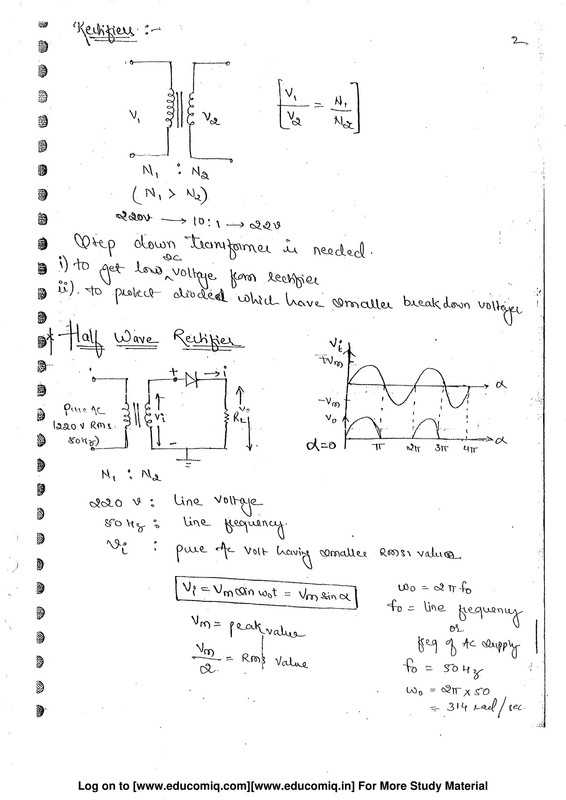 Rectifiers :-
2
V1 V2
[V1/V2 = N1/N2]
N1 : N2
(N1 > N2)
220V → 10:1 → 22V
Step down transformer is needed.
i) to get low DC voltage from rectifier
ii). to protect diodes which have smaller breakdown voltages
* Half Wave Rectifier
Pure AC
(220V Rms
50Hz)
+ i
Vi
-
RL
Vo
N1 : N2
Vi
+Vm
-Vm
α
Vo
α=0 π 2π 3π 4π α
220 V : Line voltage
50 Hz : line frequency.
Vi : pure Ac volt having smaller Rms values
Vi = Vm sin ω0t = Vm sin α
Vm = peak value
Vm/2 = Rms value
ω0 = 2πf0
f0 = line frequency
or
freq of AC supply
f0 = 50Hz
ω0 = 2π × 50
= 314 rad/sec.
Log on to [www.educomiq.com][www.educomiq.in] For More Study Material